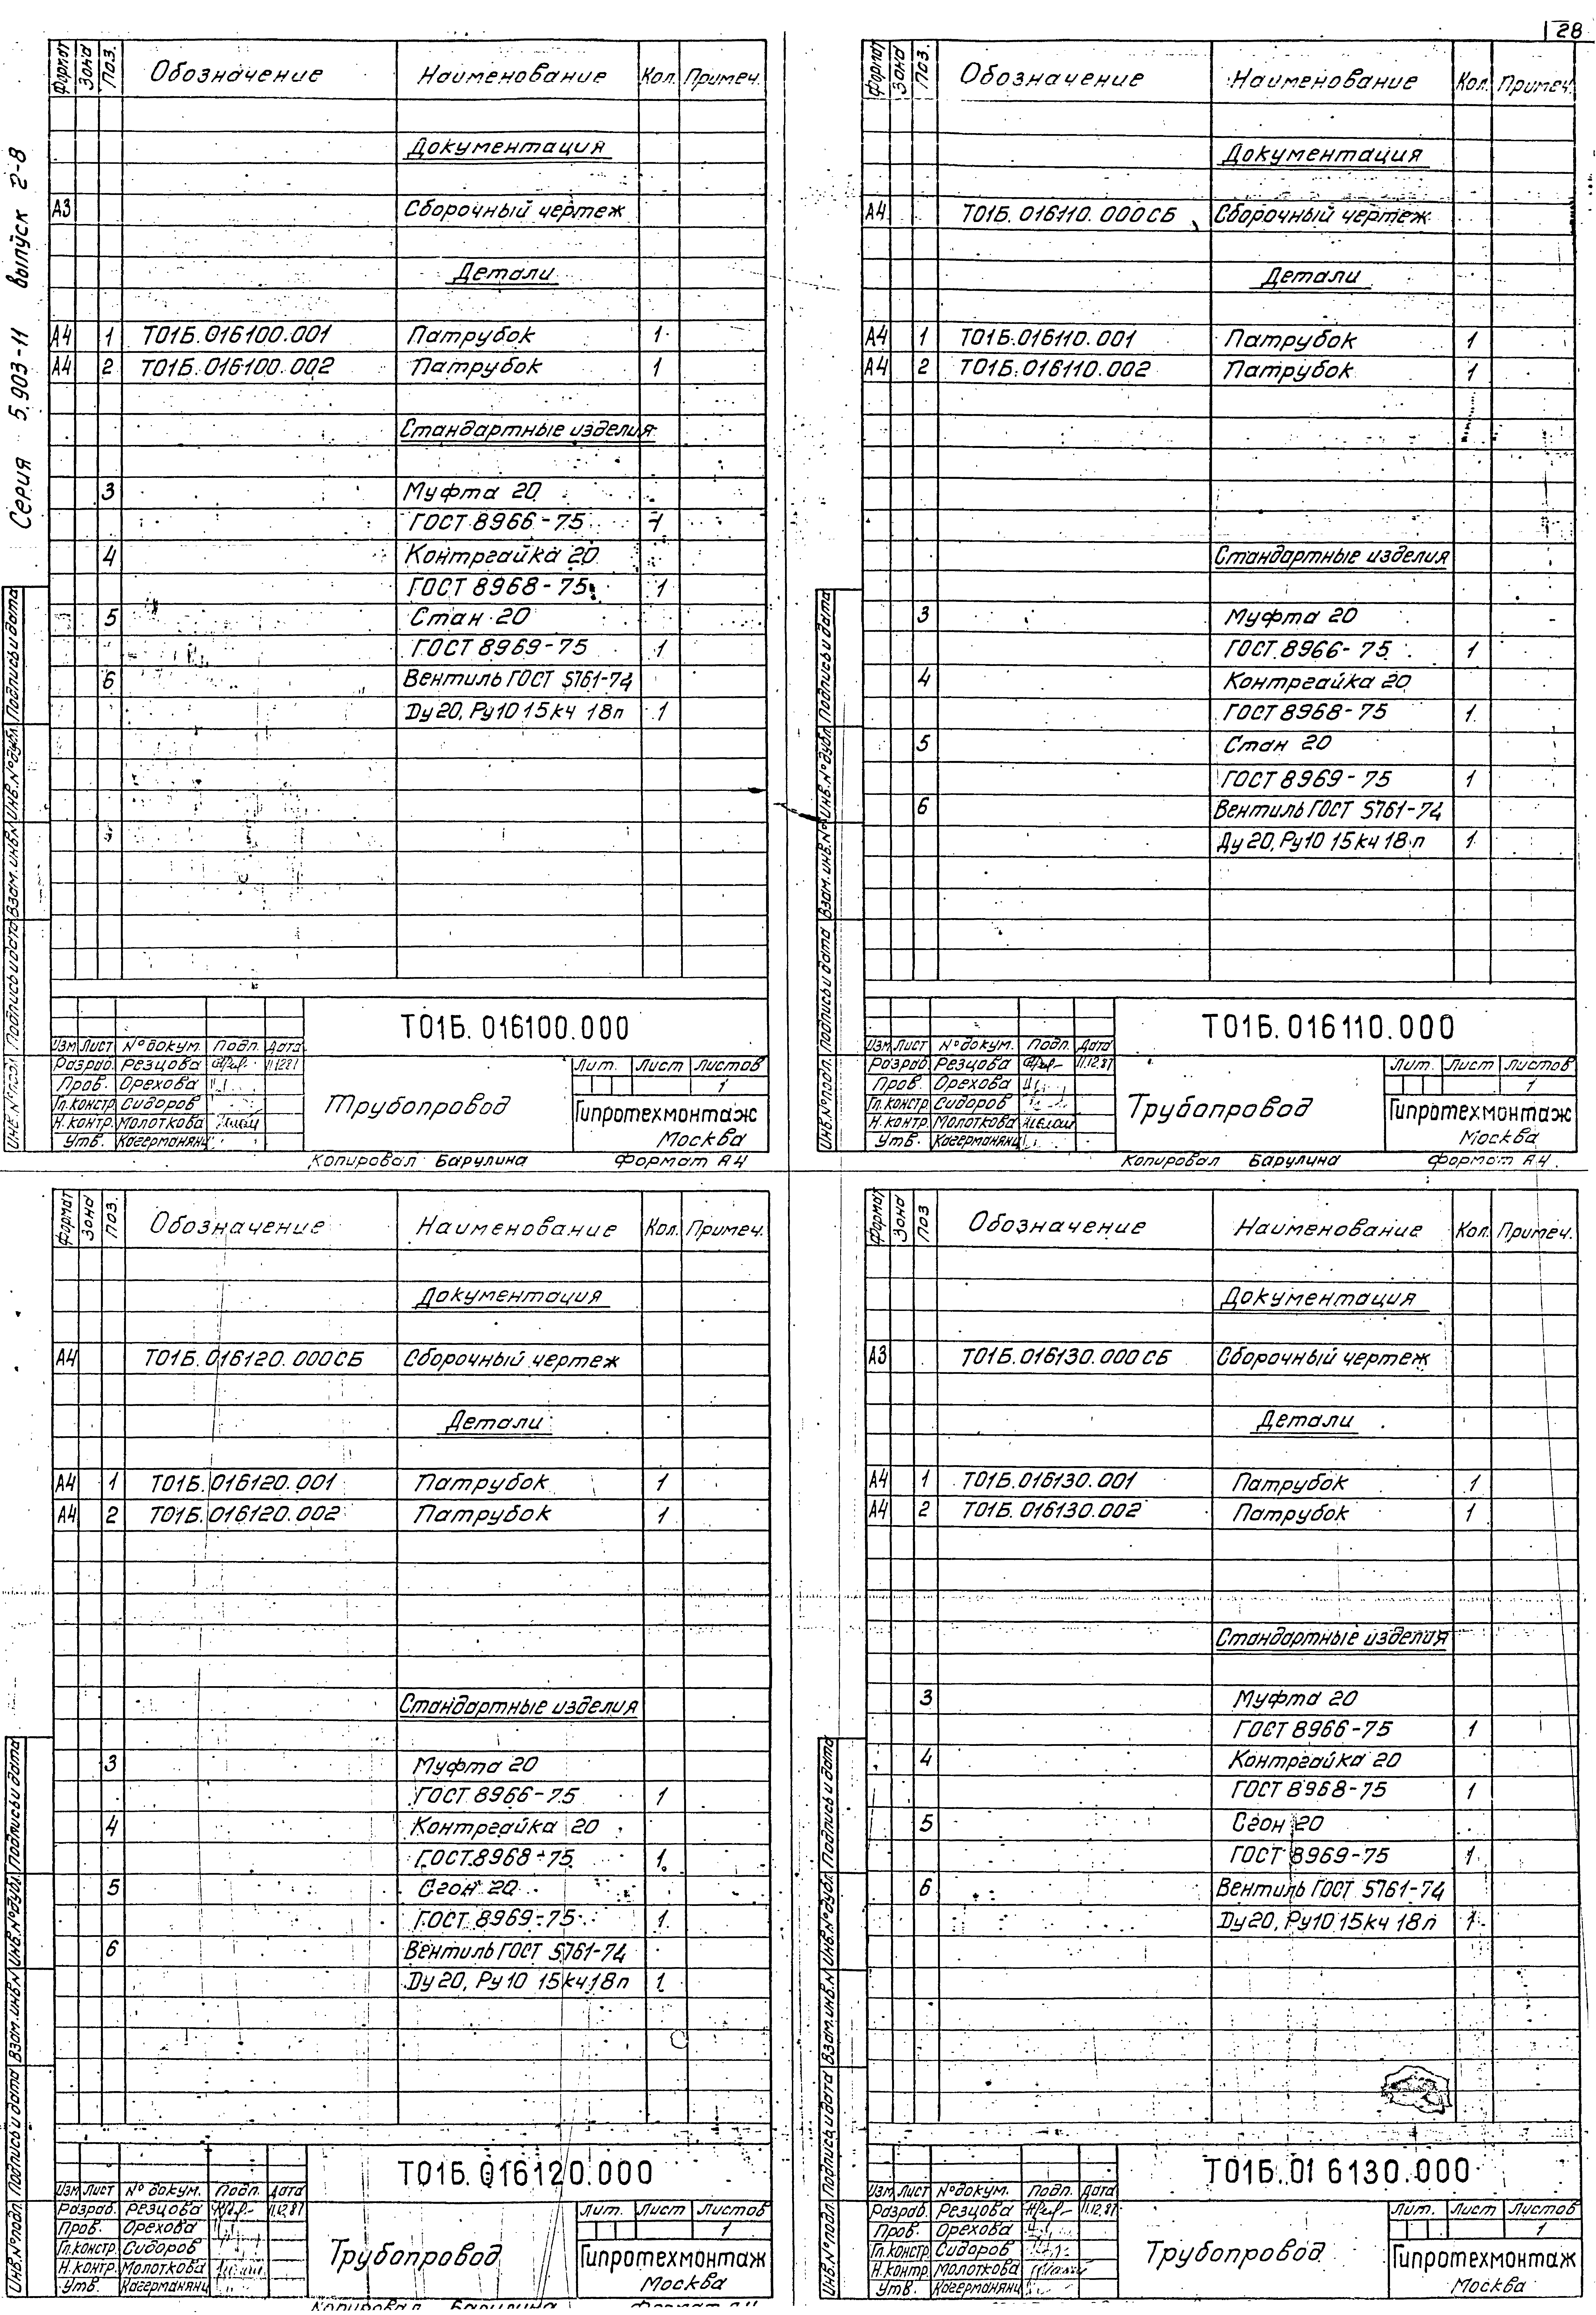 28
Серия 5.903-11 выпуск 2-8
Формат Зона Поз. Обозначение Наименование Кол. Примеч.
Документация
А3 Сборочный чертеж
Детали
А4 1 Т01Б.016100.001 Патрубок 1
А4 2 Т01Б.016100.002 Патрубок 1
Стандартные изделия
3 Муфта 20
ГОСТ 8966-75 1
4 Контргайка 20
ГОСТ 8968-75 1
5 Стан 20
ГОСТ 8969-75 1
6 Вентиль ГОСТ 5761-74
Ду 20, Ру10 15кч 18п 1
Инв.№подл. Подпись и дата Взам.инв.№ Инв.№дубл. Подпись и дата
Т01Б.016100.000
Изм Лист №докум. Подп. Дата
Разраб. Резцова 11.12.81
Пров. Орехова
Гл.констр Сидоров
Н.контр. Молоткова
Утв. Кагерманянц
Трубопровод
Лит. Лист Листов
1
Гипротехмонтаж
Москва
Копировал Барулина Формат А4
Формат Зона Поз. Обозначение Наименование Кол. Примеч.
Документация
А4 Т01Б.016110.000СБ Сборочный чертеж
Детали
А4 1 Т01Б.016110.001 Патрубок 1
А4 2 Т01Б.016110.002 Патрубок 1
Стандартные изделия
3 Муфта 20
ГОСТ 8966-75 1
4 Контргайка 20
ГОСТ 8968-75 1
5 Стан 20
ГОСТ 8969-75 1
6 Вентиль ГОСТ 5761-74
Ду 20, Ру10 15кч 18п 1
Инв.№подл. Подпись и дата Взам.инв.№ Инв.№дубл. Подпись и дата
Т01Б.016110.000
Изм Лист №докум. Подп. Дата
Разраб. Резцова 11.12.81
Пров. Орехова
Гл.констр Сидоров
Н.контр. Молоткова
Утв. Кагерманянц
Трубопровод
Лит. Лист Листов
1
Гипротехмонтаж
Москва
Копировал Барулина Формат А4
Формат Зона Поз. Обозначение Наименование Кол. Примеч.
Документация
А4 Т01Б.016120.000СБ Сборочный чертеж
Детали
А4 1 Т01Б.016120.001 Патрубок 1
А4 2 Т01Б.016120.002 Патрубок 1
Стандартные изделия
3 Муфта 20
ГОСТ 8966-75 1
4 Контргайка 20
ГОСТ 8968-75 1
5 Сгон 20
ГОСТ 8969-75 1
6 Вентиль ГОСТ 5761-74
Ду 20, Ру10 15кч 18п 1
Инв.№подл. Подпись и дата Взам.инв.№ Инв.№дубл. Подпись и дата
Т01Б.016120.000
Изм Лист №докум. Подп. Дата
Разраб. Резцова 11.12.81
Пров. Орехова
Гл.констр Сидоров
Н.контр. Молоткова
Утв. Кагерманянц
Трубопровод
Лит. Лист Листов
1
Гипротехмонтаж
Москва
Копировал Барулина Формат А4
Формат Зона Поз Обозначение Наименование Кол. Примеч.
Документация
А3 Т01Б.016130.000СБ Сборочный чертеж
Детали
А4 1 Т01Б.016130.001 Патрубок 1
А4 2 Т01Б.016130.002 Патрубок 1
Стандартные изделия
3 Муфта 20
ГОСТ 8966-75 1
4 Контргайка 20
ГОСТ 8968-75 1
5 Сгон 20
ГОСТ 8969-75 1
6 Вентиль ГОСТ 5761-74
Ду 20, Ру10 15кч 18п 1
Инв.№подл. Подпись и дата Взам.инв.№ Инв.№дубл. Подпись и дата
Т01Б.01 6130.000
Изм Лист №докум. Подп. Дата
Разраб. Резцова 11.12.81
Пров. Орехова
Гл.констр Сидоров
Н.контр. Молоткова
Утв. Кагерманянц
Трубопровод
Лит. Лист Листов
1
Гипротехмонтаж
Москва